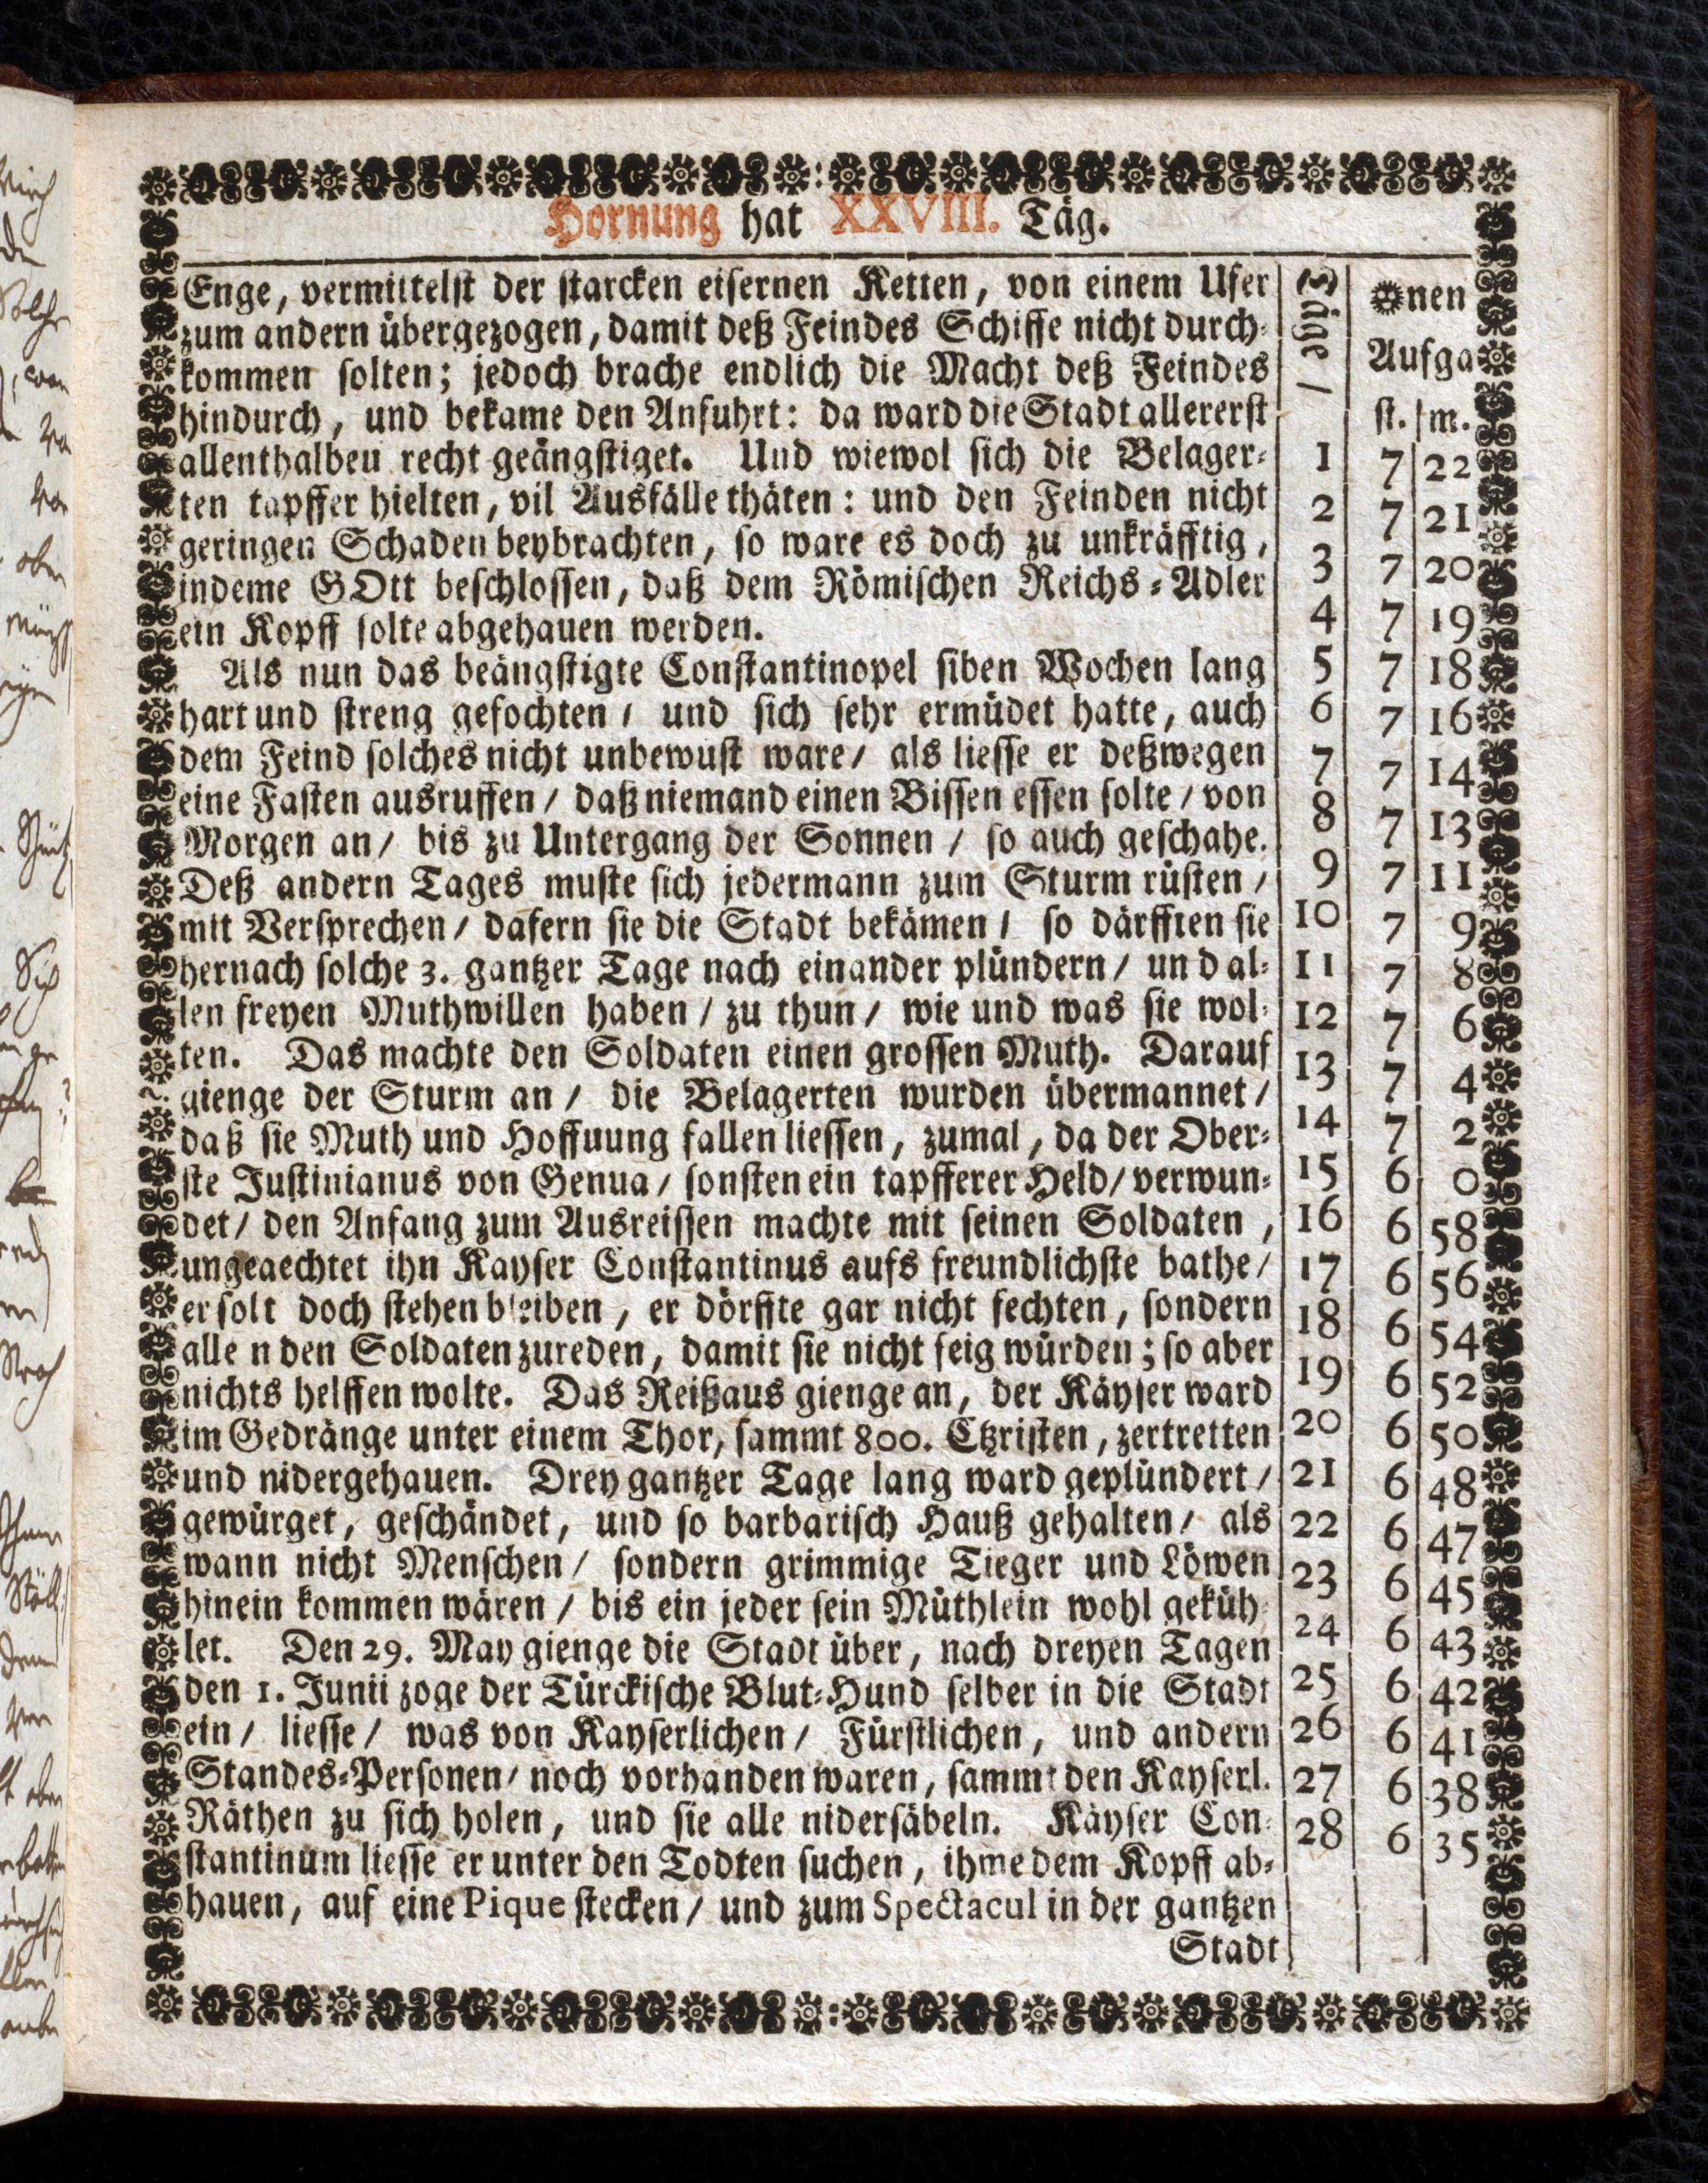 Hornung hat XXVIII. Täg.
Enge, vermittelst der starcken eisernen Ketten, von einem Ufer
zum andern übergezogen, damit deß Feindes Schiffe nicht durch-
kommen solten; jedoch brache endlich die Macht deß Feindes
hindurch, und bekame den Anfuhrt: da ward die Stadt allererst
allenthalben recht geängstiget. Und wiewol sich die Belager-
ten tapffer hielten, vil Ausfälle thäten: und den Feinden nicht
geringen Schaden beybrachten, so ware es doch zu unkräfftig,
indeme GOtt beschlossen, daß dem Römischen Reichs-Adler
ein Kopff solte abgehauen werden.
Als nun das beängstigte Constantinopel siben Wochen lang
hart und streng gefochten / und sich sehr ermüdet hatte, auch
dem Feind solches nicht unbewust ware / als liesse er deßwegen
eine Fasten ausruffen / daß niemand einen Bissen essen solte / von
Morgen an / bis zu Untergang der Sonnen / so auch geschahe.
Deß andern Tages muste sich jedermann zum Sturm rüsten /
mit Versprechen / dafern sie die Stadt bekämen / so därfften sie
hernach solche 3. gantzer Tage nach einander plündern / und al-
len freyen Muthwillen haben / zu thun / wie und was sie wol-
ten. Das machte den Soldaten einen grossen Muth. Darauf
gienge der Sturm an / die Belagerten wurden übermannet /
daß sie Muth und Hoffuung fallen liessen, zumal, da der Ober-
ste Justinianus von Genua / sonsten ein tapfferer Held / verwun-
det / den Anfang zum Ausreissen machte mit seinen Soldaten,
ungeaechtet ihn Kayser Constantinus aufs freundlichste bathe /
er solt doch stehen bleiben, er dörffte gar nicht fechten, sondern
alle n den Soldaten zureden, damit sie nicht feig würden; so aber
nichts helffen wolte. Das Reißaus gienge an, der Käyser ward
im Gedränge unter einem Thor, sammt 800. Ctzristen, zertretten
und nidergehauen. Drey gantzer Tage lang ward geplündert /
gewürget, geschändet, und so barbarisch Hauß gehalten / als
wann nicht Menschen / sondern grimmige Tieger und Löwen
hinein kommen wären / bis ein jeder sein Müthlein wohl geküh-
let. Den 29. May gienge die Stadt über, nach dreyen Tagen
den 1. Junii zoge der Türckische Blut-Hund selber in die Stadt
ein / liesse / was von Kayserlichen / Fürstlichen, und andern
Standes-Personen / noch vorhanden waren, sammt den Kayserl.
Räthen zu sich holen, und sie alle nidersäbeln. Käyser Con-
stantinum liesse er unter den Todten suchen, ihme dem Kopff ab-
hauen, auf eine Pique stecken / und zum Spectacul in der gantzen
Stadt
Täge /
nen
Aufga
st. m.
1 7 22
2 7 21
3 7 20
4 7 19
5 7 18
6 7 16
7 7 14
8 7 13
9 7 11
10 7 9
11 7 8
12 7 6
13 7 4
14 7 2
15 6 0
16 6 58
17 6 56
18 6 54
19 6 52
20 6 50
21 6 48
22 6 47
23 6 45
24 6 43
25 6 42
26 6 41
27 6 38
28 6 35